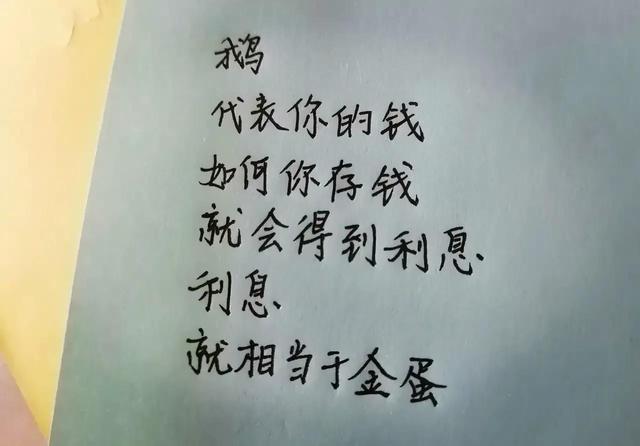 鹅
代表你的钱
如何你存钱
就会得到利息
利息
就相当于金蛋